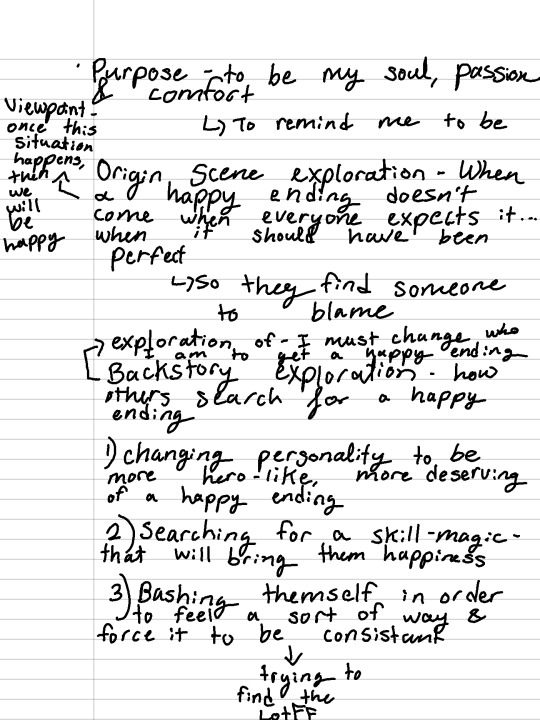 Purpose - to be my soul, passion
& comfort
↳ To remind me to be
Viewpoint -
once this
situation
happens,
then
we
will
be
happy
Origin Scene exploration - When
a happy ending doesn't
come when everyone expects it...
when it should have been
perfect
↳ So they find someone
to blame
→ exploration of - I must change who
I am to get a happy ending
Backstory exploration - how
others search for a happy
ending
1) changing personality to be
more hero-like, more deserving
of a happy ending
2) Searching for a skill-magic-
that will bring them happiness
3) Bashing themself in order
to feel a sort of way &
force it to be consistant
↓
trying to
find the
LotFF